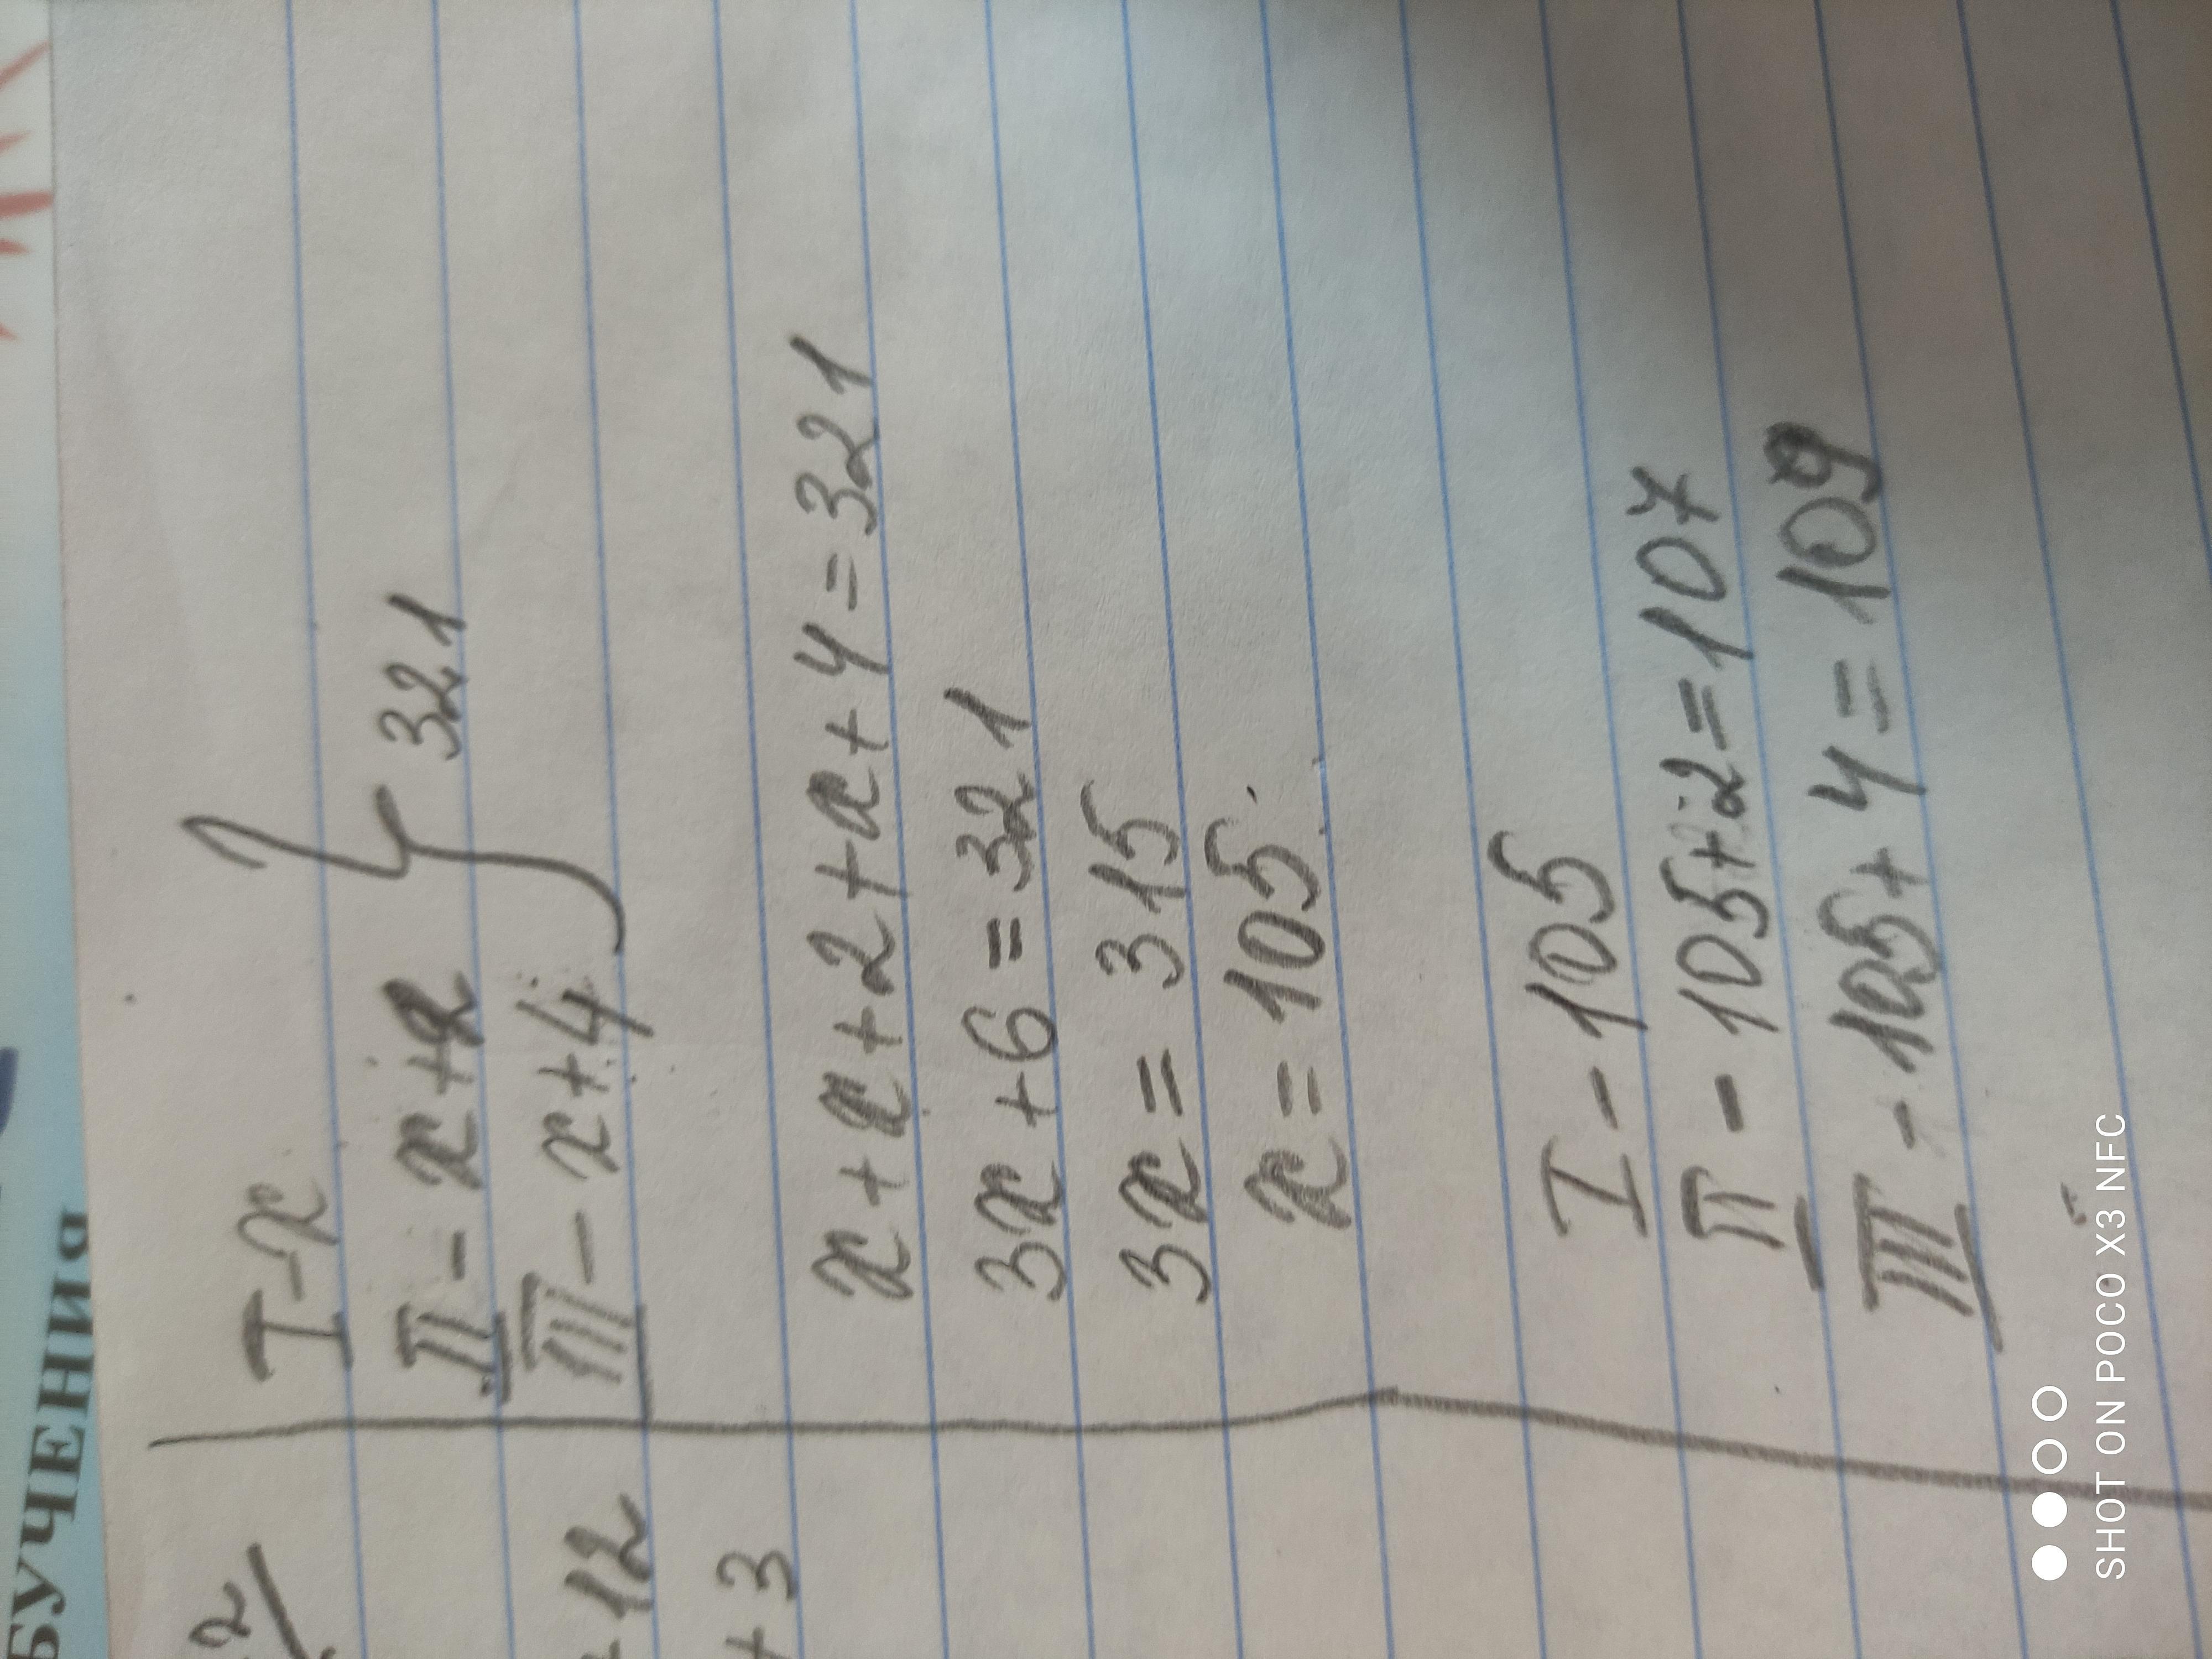 БУЧЕНИЯ
I - x
II - x+2
III - x+4
} 321
x + x + 2 + x + 4 = 321
3x + 6 = 321
3x = 315
x = 105
I - 105
II - 105+2=107
III - 105+4=109
2
12
+ 3
SHOT ON POCO X3 NFC